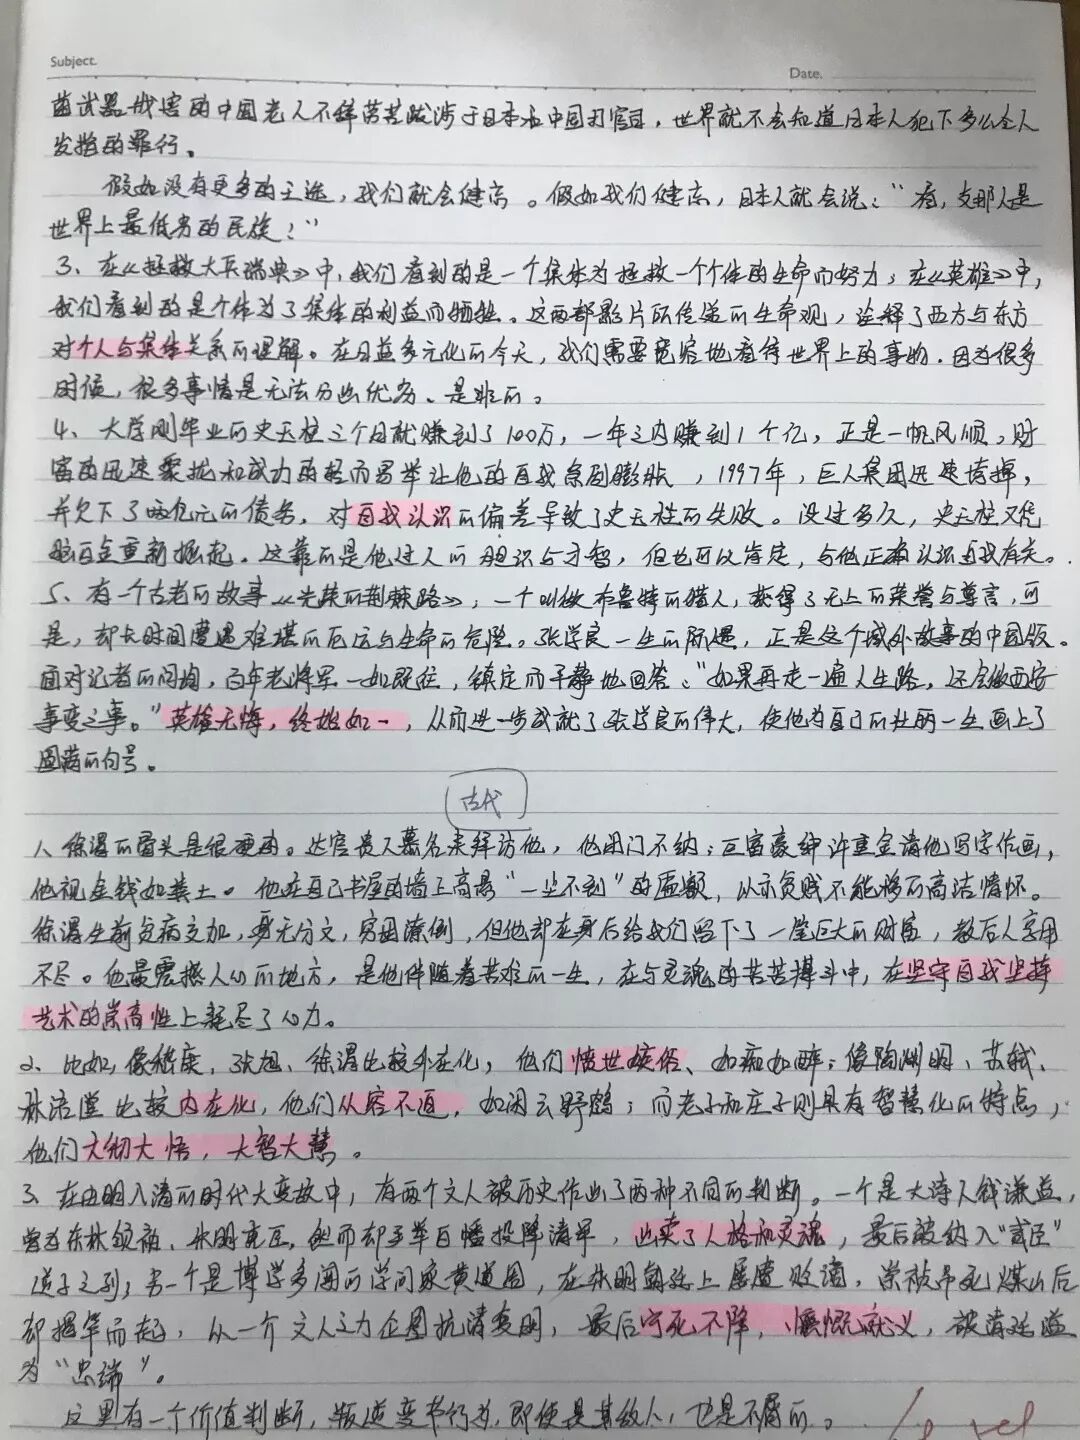 Subject.
Date.
菌武器戕害的中国老人不辞劳苦跋涉于日本和中国打官司，世界就不会知道日本人犯下多么令人
发指的罪行。
假如没有更多的王选，我们就会健忘。假如我们健忘，日本人就会说：“看，支那人是
世界上最低劣的民族！”
3、在《拯救大兵瑞恩》中，我们看到的是一个集体为拯救一个个体的生命而努力；在《英雄》中，
我们看到的是个体为了集体的利益而牺牲。这两部影片所传递的生命观，诠释了西方与东方
对个人与集体关系的理解。在日益多元化的今天，我们需要宽容地看待世界上的事物，因为很多
时候，很多事情是无法分出优劣、是非的。
4、大学刚毕业的史玉柱三个月就赚到了100万，一年之内赚到1个亿，正是一帆风顺，财
富的迅速聚拢和成功的轻而易举让他的自我急剧膨胀，1997年，巨人集团迅速垮掉，
并欠下了两亿元的债务，对自我认识的偏差导致了史玉柱的失败。没过多久，史玉柱又凭
脑白金重新掘起。这靠的是他过人的胆识与才智，但也可以肯定，与他正确认识自我有关。
5、有一个古老的故事《光荣的荆棘路》；一个叫做布鲁特的猎人，获得了无上的荣誉与尊言，可
是，却长时间遭遇难堪的厄运与生命的危险。张学良一生的际遇，正是这个域外故事的中国版。
面对记者的问询，百年老将军一如既往，镇定而平静地回答：“如果再走一遍人生路，还会做西安
事变之事。”英雄无悔，终始如一，从而进一步成就了张学良的伟大，使他为自己的壮丽一生画上了
圆满的句号。
古代
1、徐渭的骨头是很硬的。达官贵人慕名来拜访他，他闭门不纳；巨富豪绅许重金请他写字作画，
他视金钱如粪土。他在自己书屋的墙上高悬“一尘不到”的匾额，以示贫贱不能移的高洁情怀。
徐渭生前贫病交加，身无分文，穷困潦倒，但他却在身后给我们留下了一笔巨大的财富，教后人享用
不尽。他最震撼人心的地方，是他伴随着苦难的一生，在与灵魂的苦苦搏斗中，在坚守自我坚持
艺术的崇高性上耗尽了心力。
2、比如，像嵇康、张旭、徐渭比较外在化，他们愤世嫉俗、如痴如醉；像陶渊明、苏轼、
林语堂比较内在化，他们从容不迫，如闲云野鹤；而老子和庄子则具有智慧化的特点，
他们大彻大悟，大智大慧。
3、在由明入清的时代大变故中，有两个文人被历史作出了两种不同的判断。一个是大诗人钱谦益，
曾为东林领袖、朱明克臣，然而却手举白幡投降清军，出卖了人格和灵魂，最后被纳入“贰臣”
逆子之列；另一个是博学多闻的学问家黄道周，在朱明朝廷上屡遭败谪，崇祯吊死煤山后
却揭竿而起，从一个文人之力企图抗清复明，最后宁死不降，慷慨就义，被清廷谥
为“忠端”。
这里有一个价值判断，叛逆变节行为，即使是其敌人，也是不屑的。